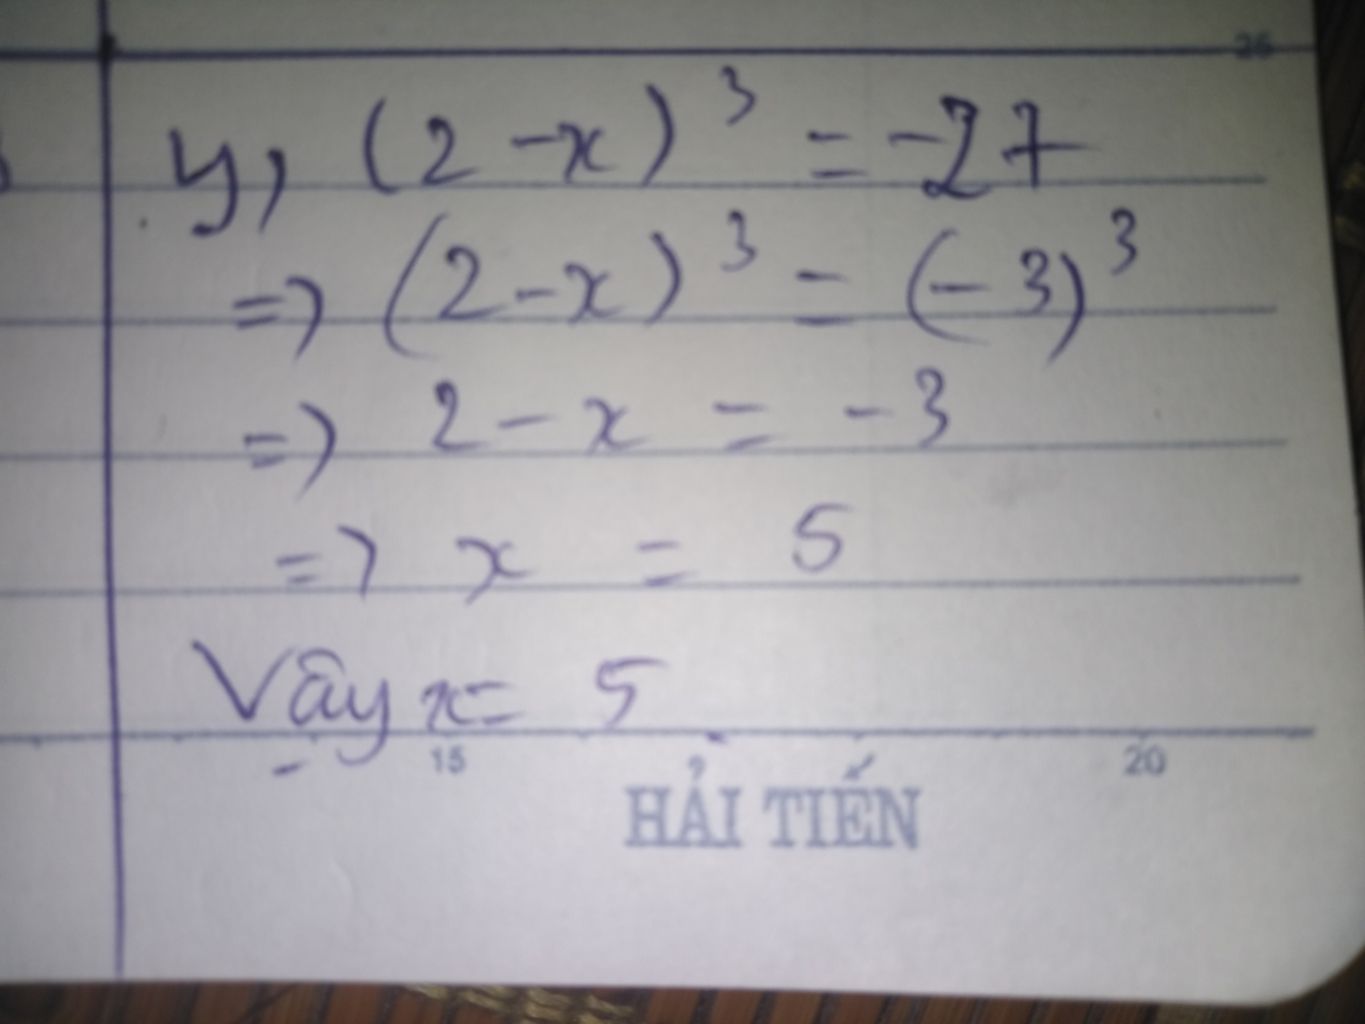 26
y, (2 - x)³ = -27
=> (2 - x)³ = (-3)³
=> 2 - x = -3
=> x = 5
Vậy x = 5
15 20
HẢI TIẾN